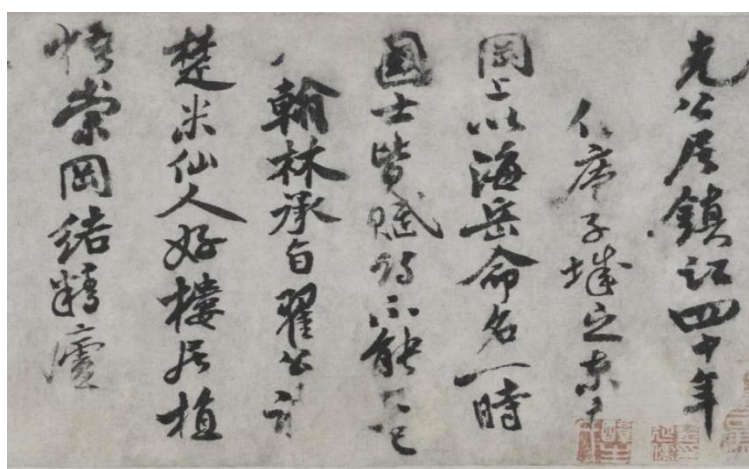 先公居鎮江四十年
庵于城之東
岡上以海岳命名一時
國士皆賦詩不能
翰林承旨翟公詩
楚米仙人好樓居植
梧崇岡結精廬